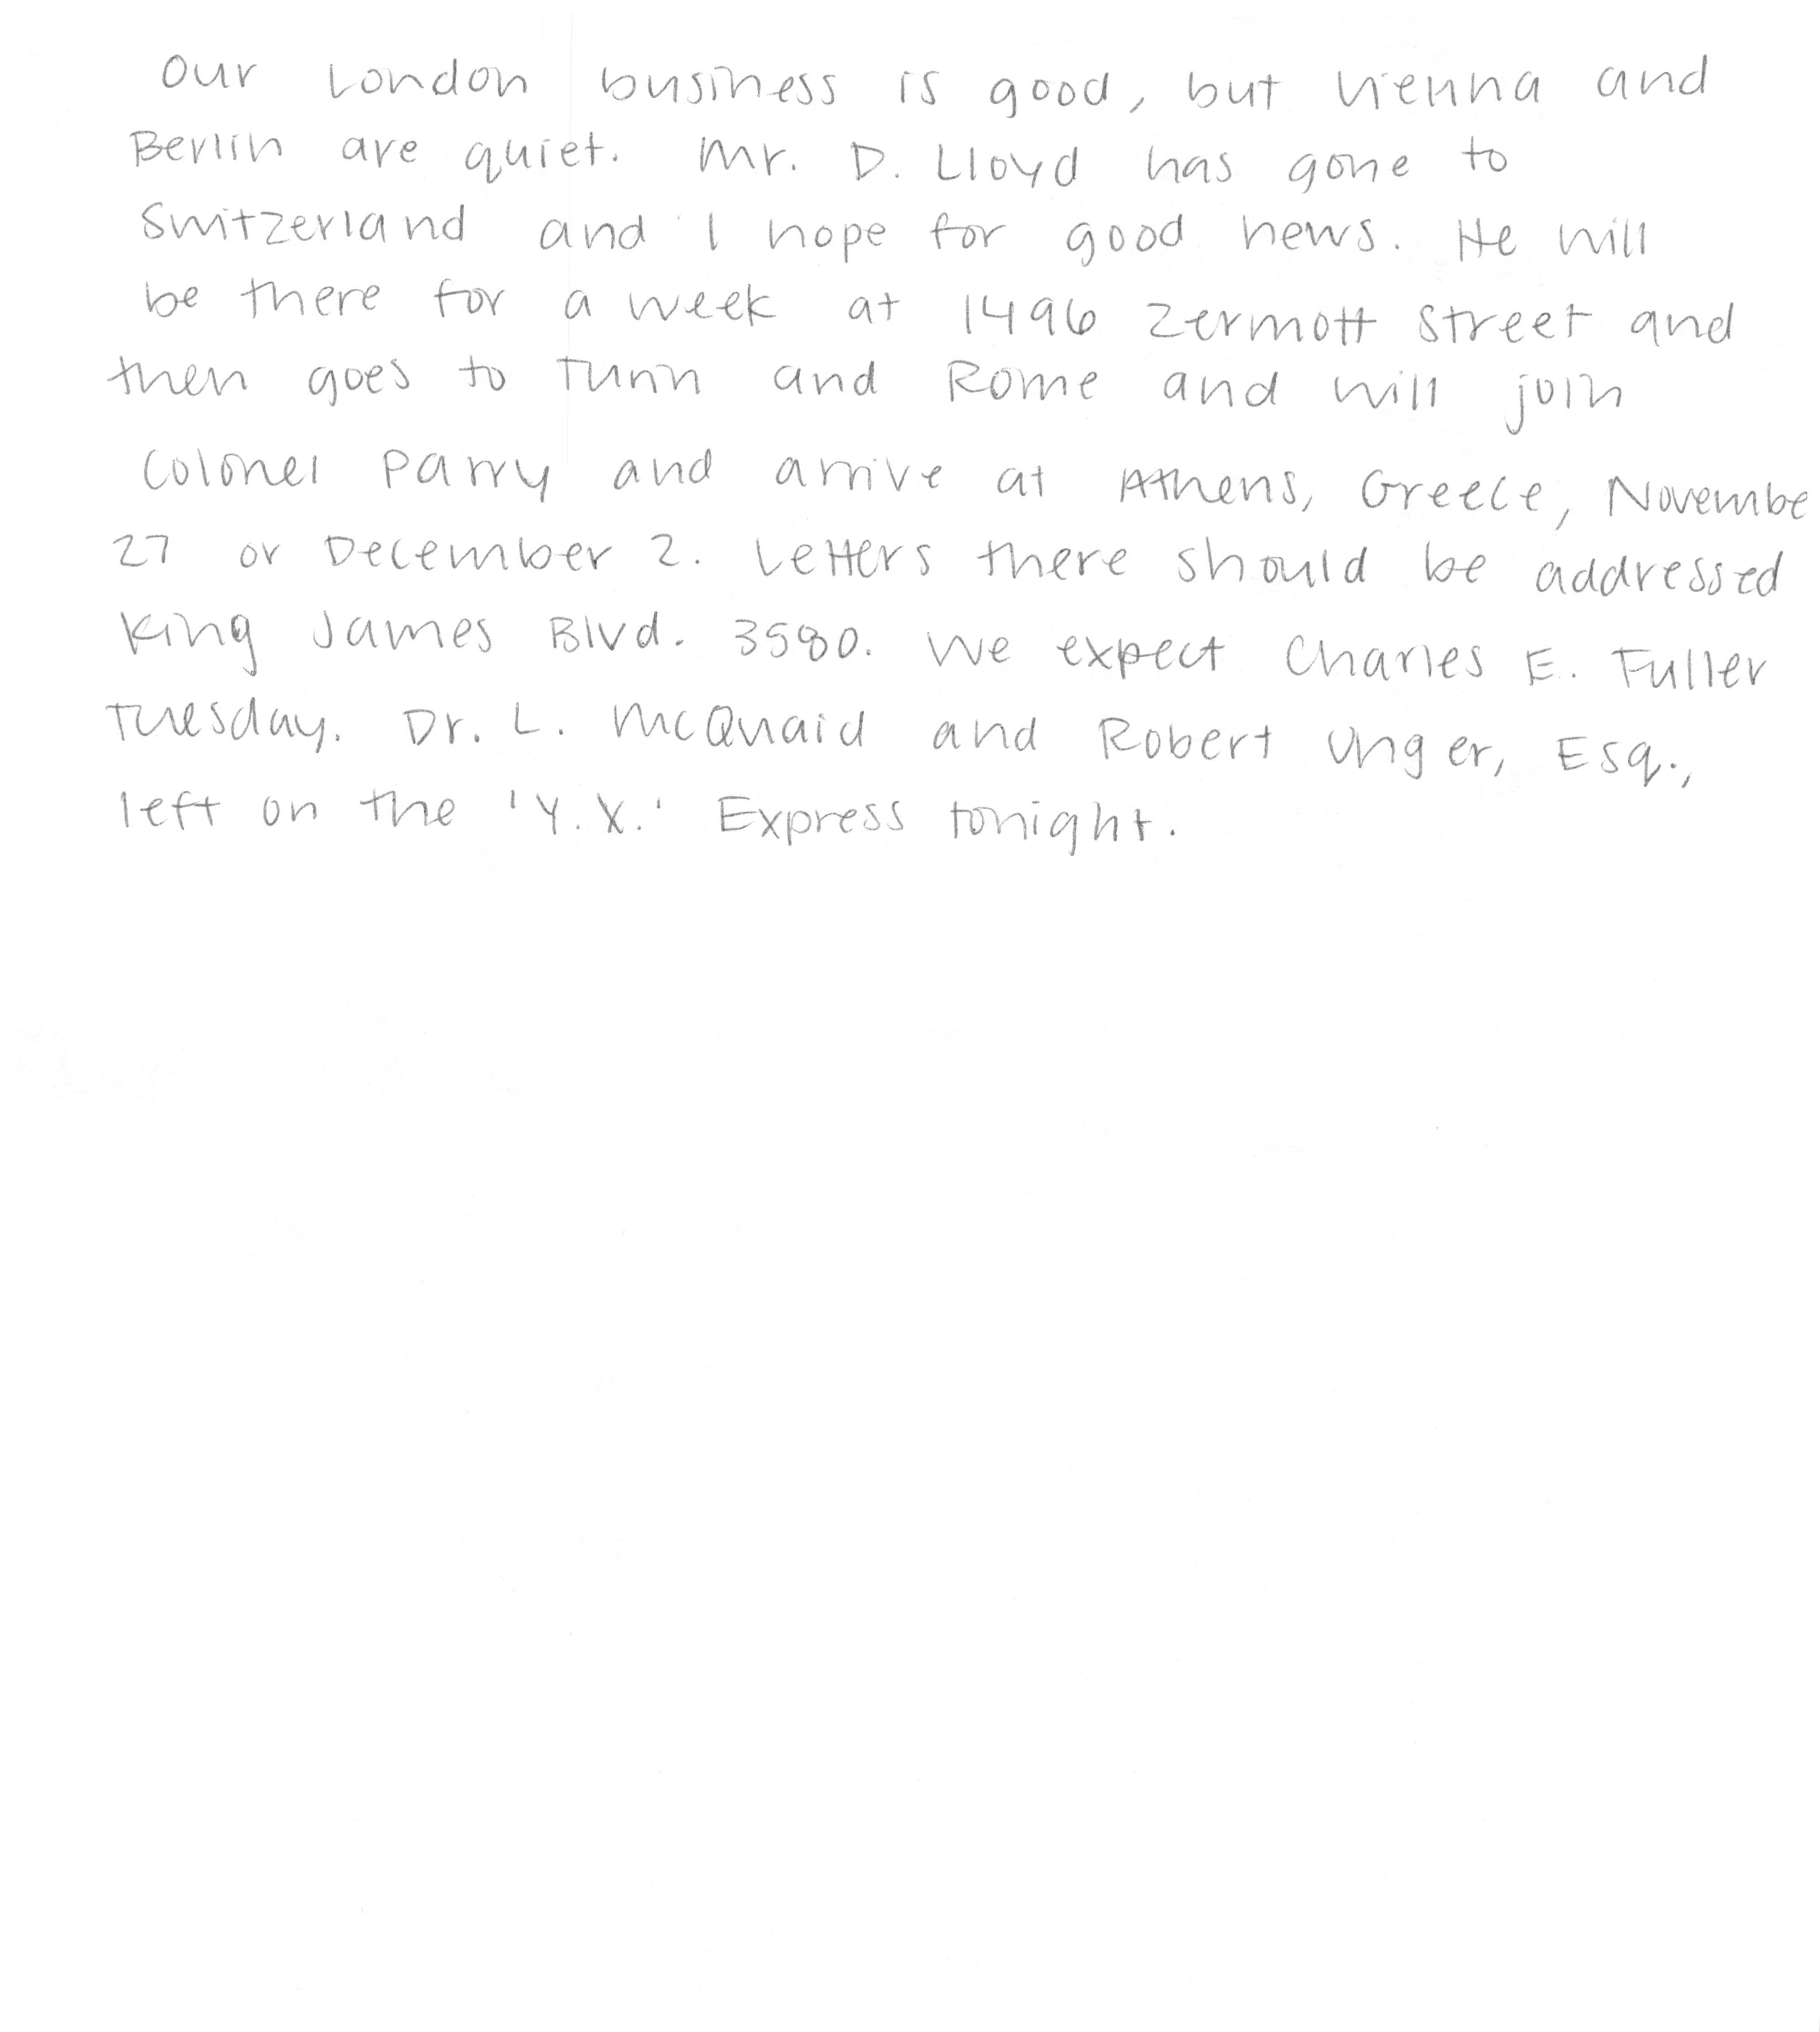 Our London business is good, but Vienna and
Berlin are quiet. Mr. D. Lloyd has gone to
Switzerland and I hope for good news. He will
be there for a week at 1496 Zermott Street and
then goes to Turin and Rome and will join
Colonel Parry and arrive at Athens, Greece, Novembe
27 or December 2. Letters there should be addressed
King James Blvd. 3580. We expect Charles E. Fuller
Tuesday. Dr. L. McQuaid and Robert Unger, Esq.,
left on the 'Y.X.' Express tonight.